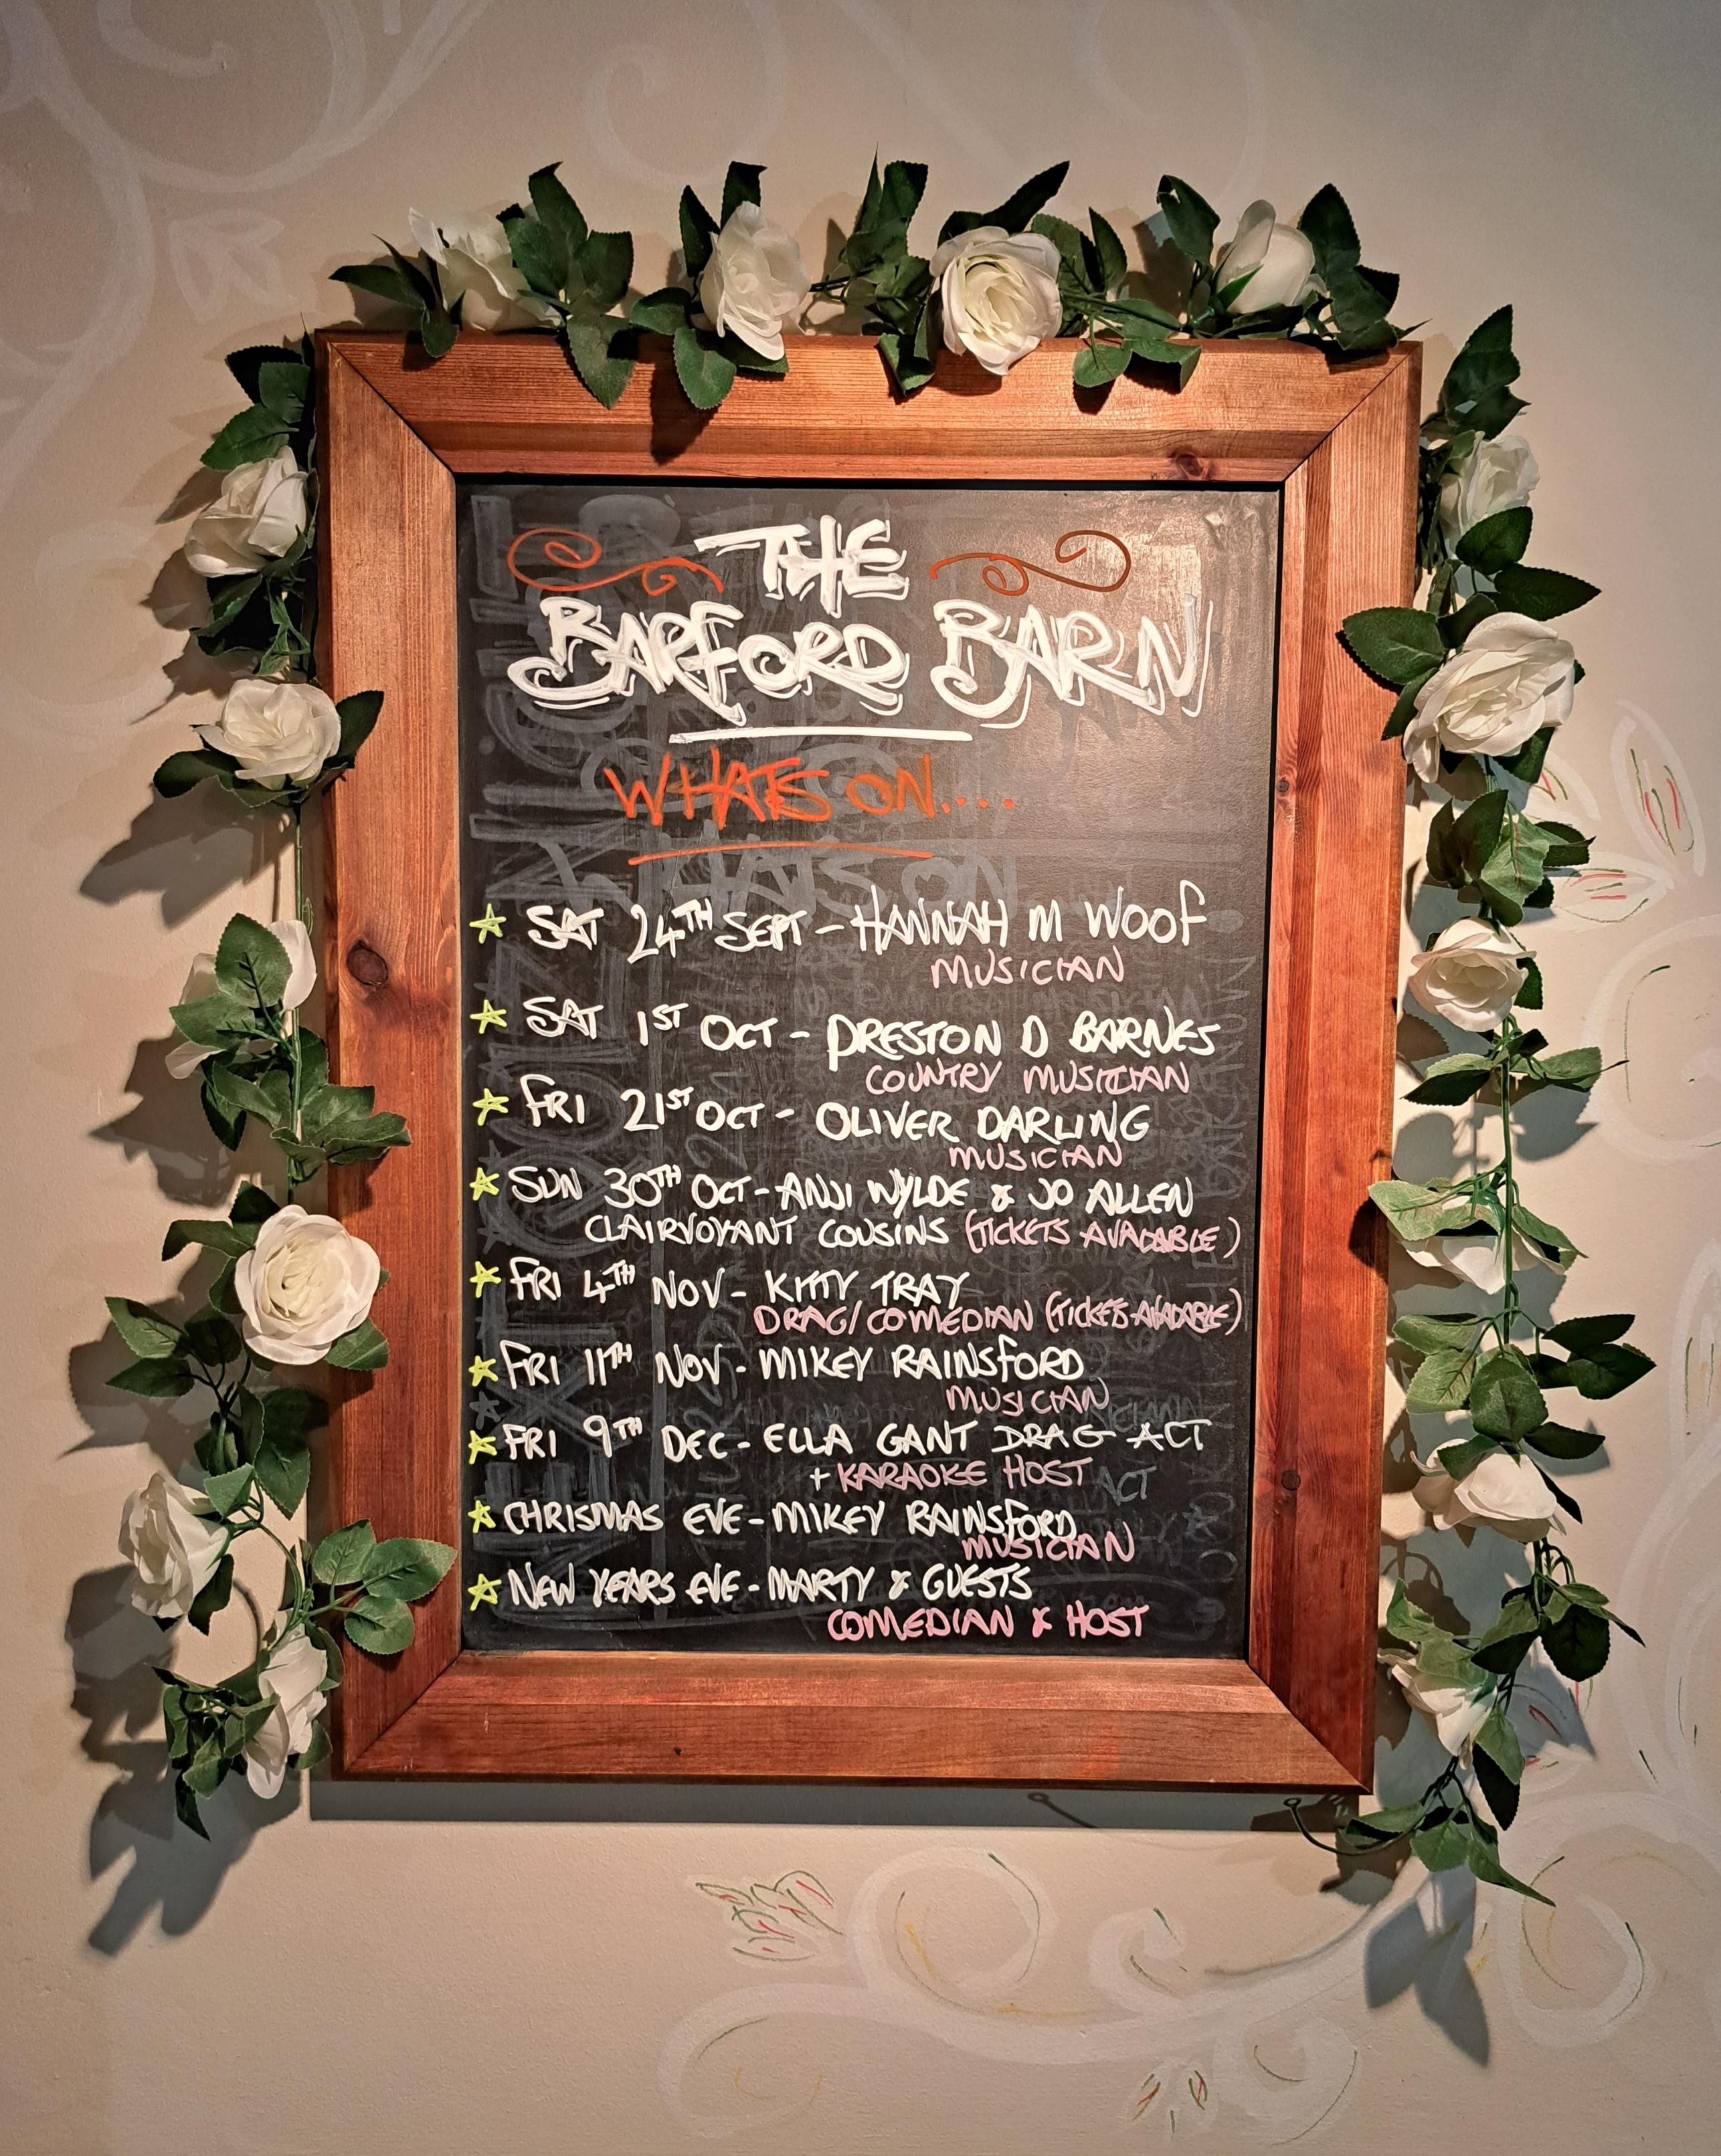 THE
BARFORD BARN
WHATS ON....
SAT 24TH SEPT - HANNAH M WOOF
MUSICIAN
SAT 1ST OCT - PRESTON D BARNES
COUNTRY MUSICIAN
FRI 21ST OCT - OLIVER DARLING
MUSICIAN
SUN 30TH OCT - ANJI WYLDE & JO ALLEN
CLAIRVOYANT COUSINS (TICKETS AVAILABLE)
FRI 4TH NOV - KITTY TRAY
DRAG/COMEDIAN (TICKETS AVAILABLE)
FRI 11TH NOV - MIKEY RAINSFORD
MUSICIAN
FRI 9TH DEC - ELLA GANT DRAG ACT
+ KARAOKE HOST
CHRISMAS EVE - MIKEY RAINSFORD
MUSICIAN
NEW YEARS EVE - MARTY & GUESTS
COMEDIAN & HOST